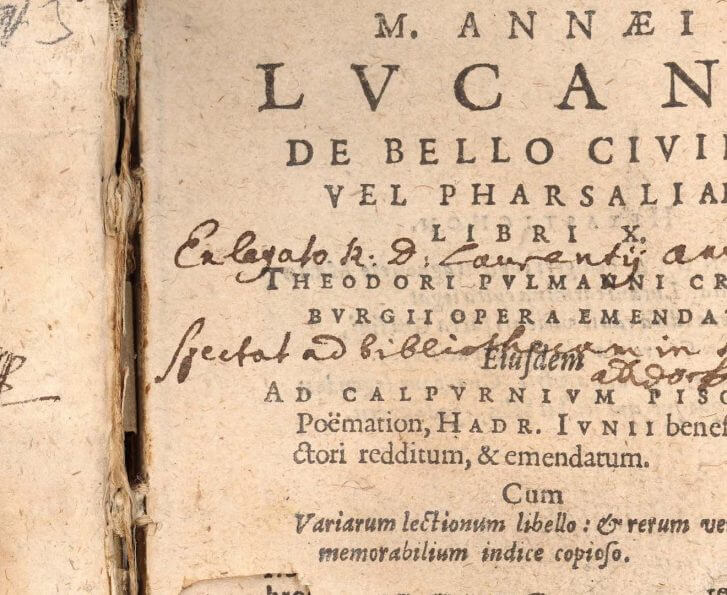 M. ANNÆI
LVCAN
DE BELLO CIVI
VEL PHARSALIA
LIBRI X.
Ex legato R. D. Laurentij
THEODORI PVLMANNI CR
BVRGII OPERA EMENDA
Spectat ad bibliothecam in
Eiuſdem
AD CALPVRNIVM PISO
Poëmation, HADR. IVNII benef
ctori redditum, & emendatum.
Cum
Variarum lectionum libello: & rerum ve
memorabilium indice copioſo.